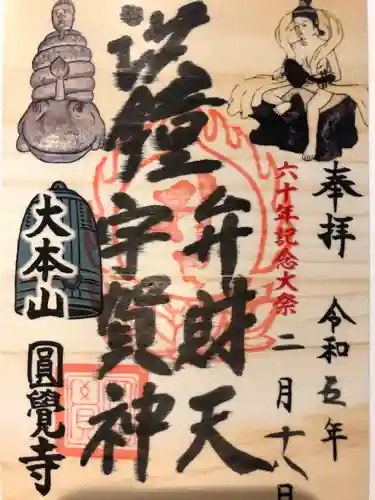 奉拝 令和五年
二月十八日
六十年記念大祭
洪鐘
弁財天
宇賀神
大本山
圓覺寺